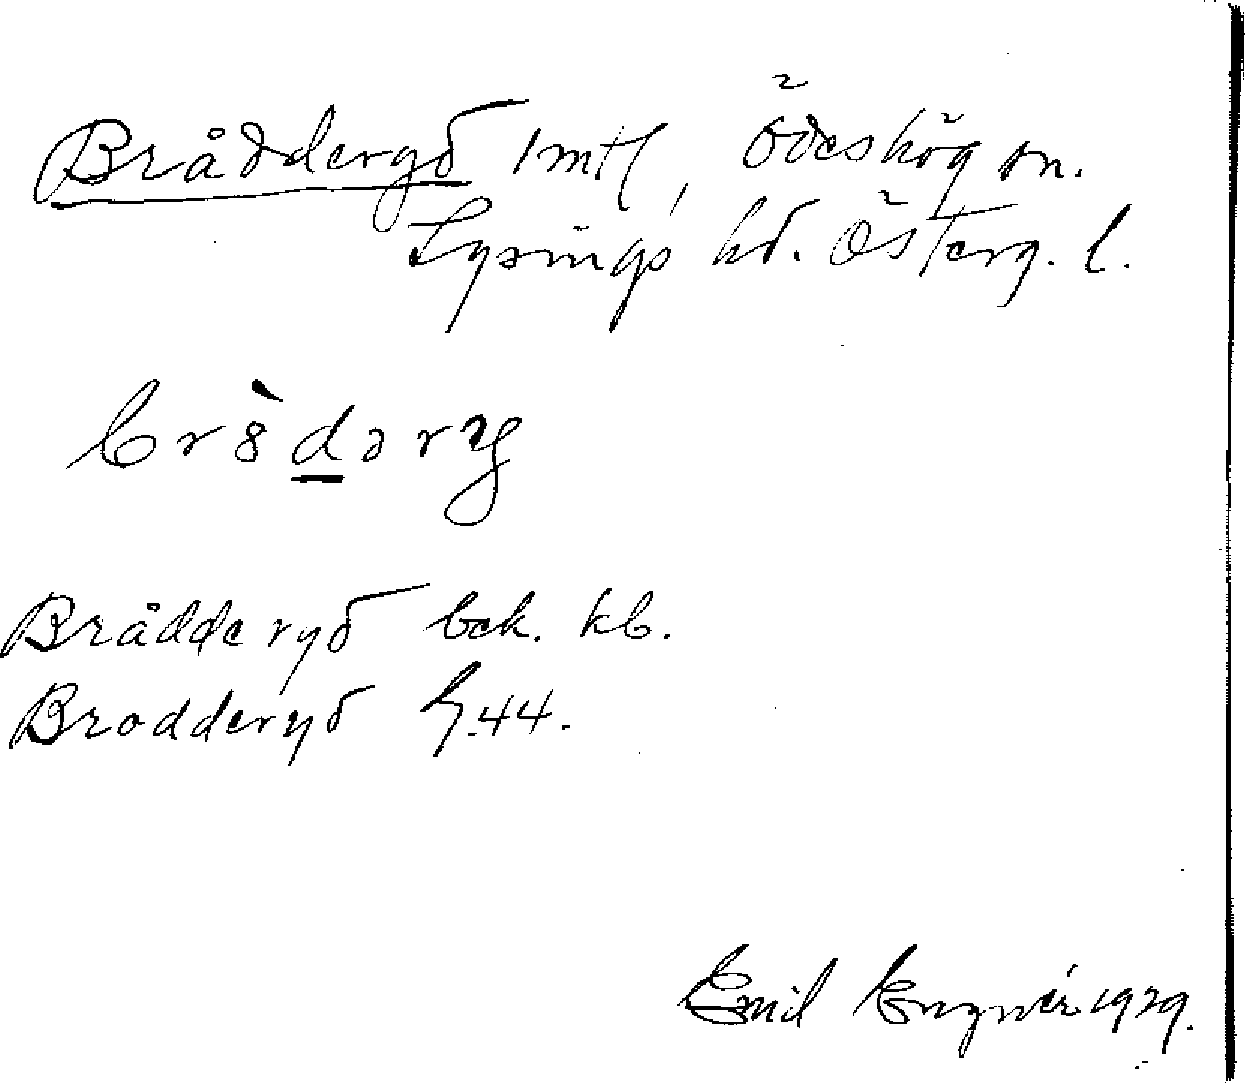 Bråddergd 1 mtl, Ödeshög sn.
Lysings hd. Österg. l.
br8̀dəry
Bråddéryd bek. kb.
Brodderyd
Emil Engnér 1929.